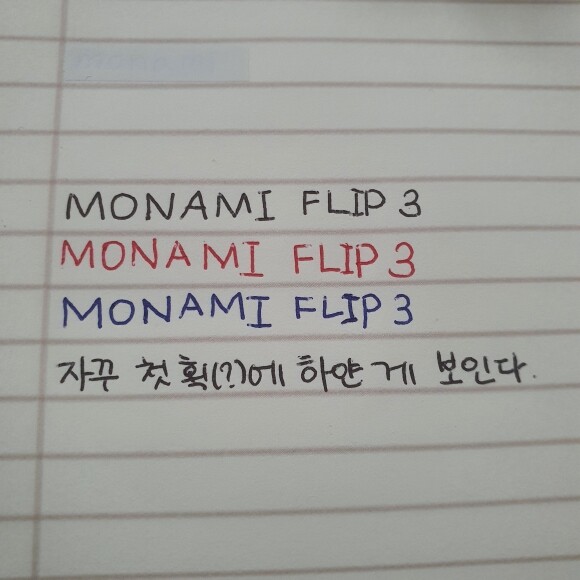 MONAMI FLIP 3
MONAMI FLIP 3
MONAMI FLIP 3
자꾸 첫 획(?)에 하얀 게 보인다.